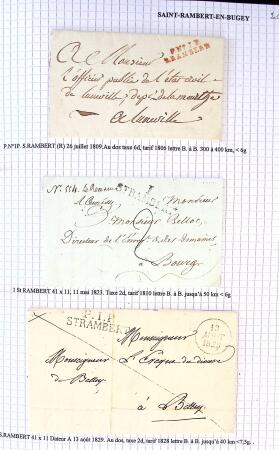 SAINT-RAMBERT-EN-BUGEY
P.N° 1.P.
S.RAMBERT
A Monsieur
L'officier public de l'état civil
de Lunéville, dépt de la meurthe
a Lunéville
P.N°1P. S.RAMBERT (R) 26 juillet 1809. Au dos taxe 6d, tarif 1806 lettre B. à B. 300 à 400 km, < 6g
N° 554.
1
ST RAMBERT
Monsieur
Monsieur Belloc,
Directeur de l'Enregt & des domaines
à Bourg
1 St RAMBERT 41 x 11, 11 mai 1823. Taxe 2d, tarif 1810 lettre B. à B. jusqu'à 50 km < 6g
P.1.P.
STRAMBERT
13
AOUT
1829
Monseigneur
Monseigneur L'Evêque du diocèse
de Belley
à Belley
S.RAMBERT 41 x 11 Dateur A 13 août 1829. Au dos, taxe 2d, tarif 1828 lettre B. à B. jusqu'à 40 km <7,5g